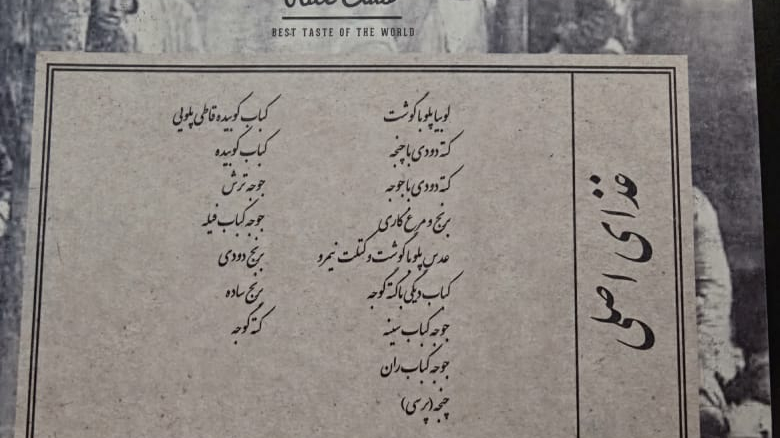 BEST TASTE OF THE WORLD
غذای اصلی
لوبیا پلو با گوشت
کته دودی با چنجه
کته دودی با جوجه
برنج و مرغ کاری
عدس پلو با گوشت و کتلت نیمرو
کباب دیگی با کته گوجه
جوجه کباب سینه
جوجه کباب ران
چنجه (پرسی)
کباب کوبیده قاطی پلویی
کباب کوبیده
جوجه ترش
جوجه کباب فیله
برنج دودی
برنج ساده
کته گوجه